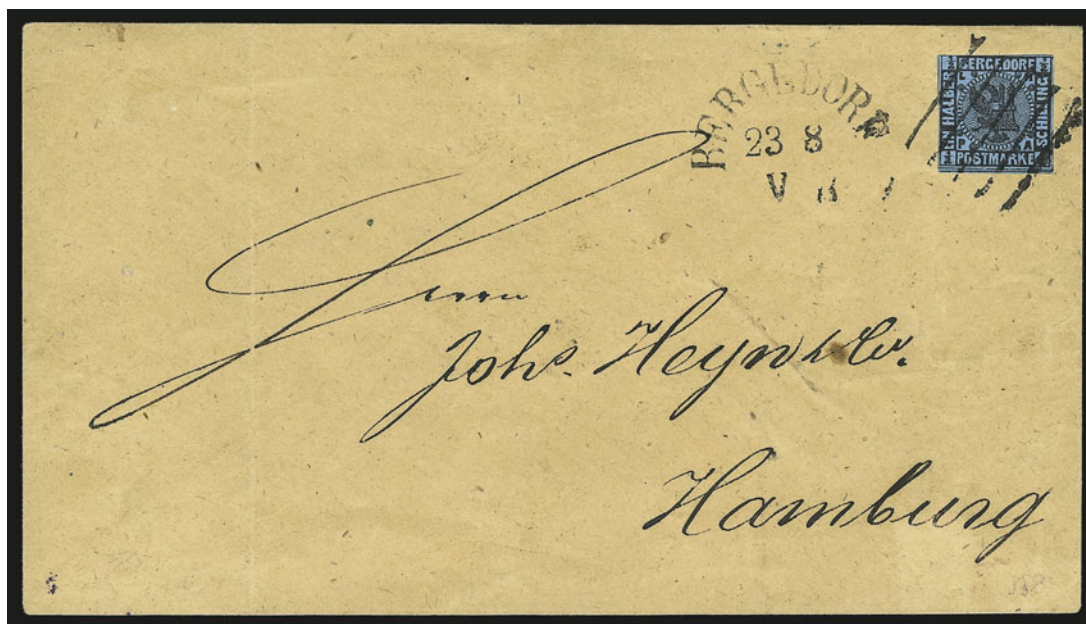 BERGEDORF
23 8
V
BERGEDORF
EIN HALBER
SCHILLING
POSTMARKE
Herrn
Johs.
Hamburg